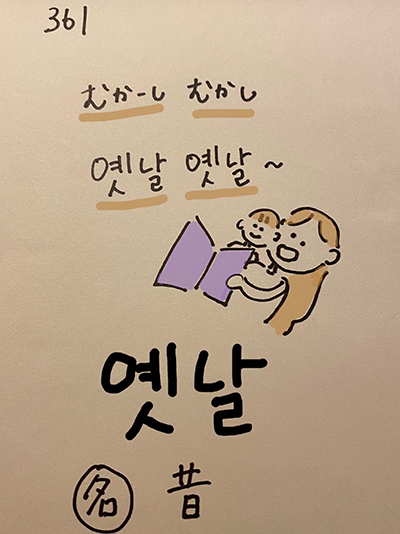 361
むかーし むかし
옛날 옛날~
옛날
名 昔